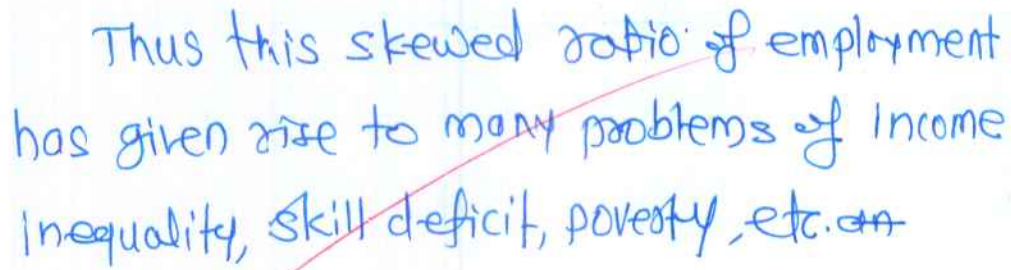 Thus this skewed ratio of employment
has given rise to many problems of income
inequality, skill deficit, poverty, etc.